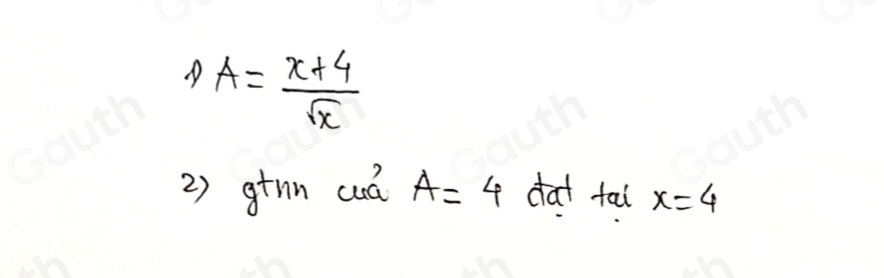 1) A = \frac{x+4}{\sqrt{x}}
2) gtnn cuả A = 4 đạt tại x = 4
Gauth
Gauth
Gauth
Gauth